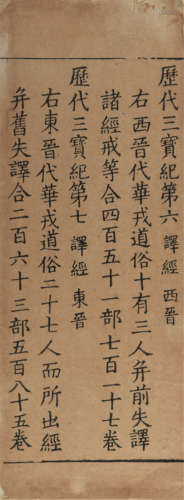 歷代三寶紀第六 譯經 西晉
右西晉代華戎道俗十有三人并前失譯
諸經戒等合四百五十一部七百一十七卷
歷代三寶紀第七 譯經 東晉
右東晉代華戎道俗二十七人而所出經
并舊失譯合二百六十三部五百八十五卷